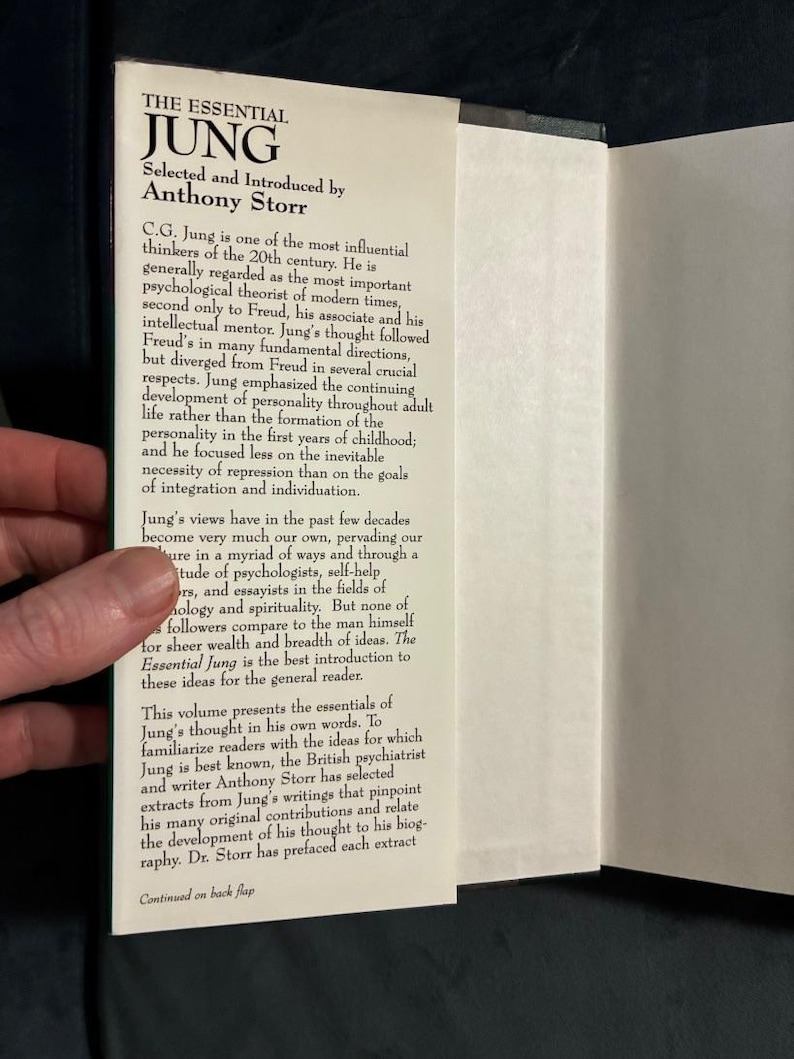 THE ESSENTIAL
JUNG
Selected and Introduced by
Anthony Storr
C.G. Jung is one of the most influential
thinkers of the 20th century. He is
generally regarded as the most important
psychological theorist of modern times,
second only to Freud, his associate and his
intellectual mentor. Jung's thought followed
Freud's in many fundamental directions,
but diverged from Freud in several crucial
respects. Jung emphasized the continuing
development of personality throughout adult
life rather than the formation of the
personality in the first years of childhood;
and he focused less on the inevitable
necessity of repression than on the goals
of integration and individuation.
Jung's views have in the past few decades
become very much our own, pervading our
in a myriad of ways and through a
of psychologists, self-help
and essayists in the fields of
and spirituality. But none of
followers compare to the man himself
for sheer wealth and breadth of ideas. The
Essential Jung is the best introduction to
these ideas for the general reader.
This volume presents the essentials of
Jung's thought in his own words. To
familiarize readers with the ideas for which
Jung is best known, the British psychiatrist
and writer Anthony Storr has selected
extracts from Jung's writings that pinpoint
his many original contributions and relate
the development of his thought to his biog-
raphy. Dr. Storr has prefaced each extract
Continued on back flap